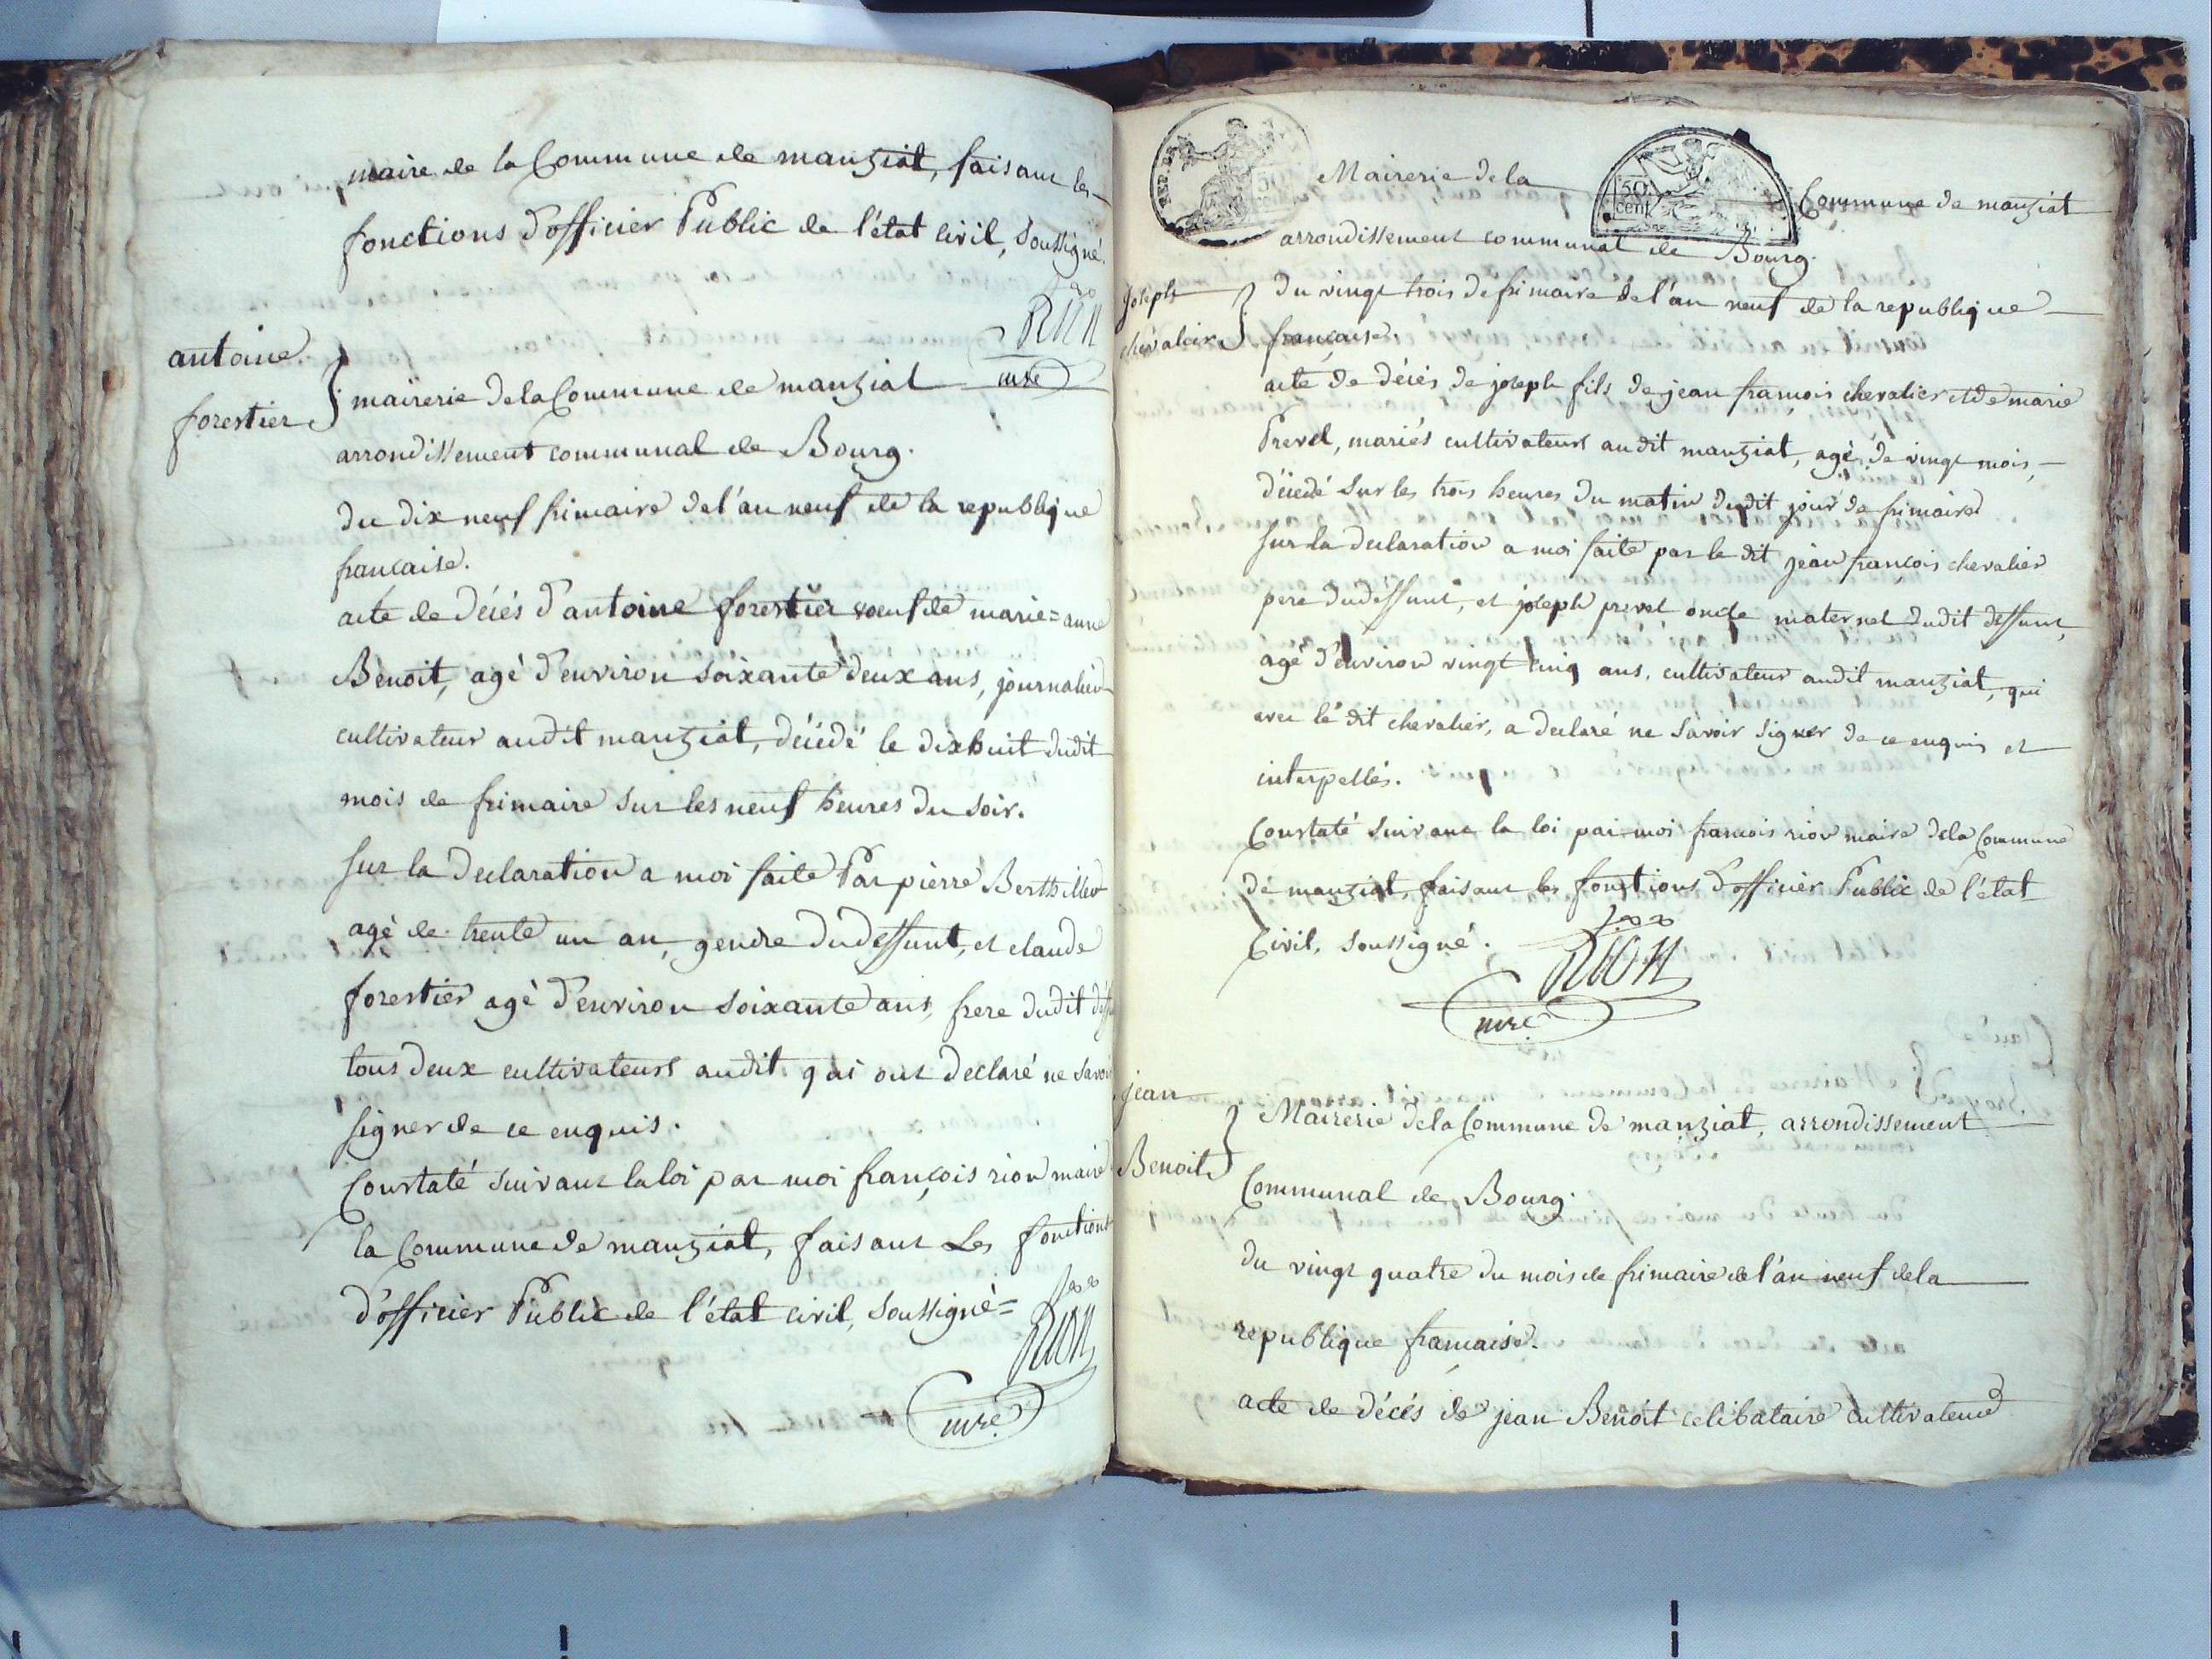 maire de la Commune de manziat, faisant les
fonctions d'officier Public de l'état civil, soussigné.
Rion
mre
antoine
forestier
maïrerie de la Commune de manziat
arrondissement communal de Bourg.
du dix neuf frimaire de l'an neuf de la republique
française.
acte de décés d'antoine forestier veuf de marie=anne
Benoit, agé d'environ soixante deux ans, journalier
cultivateur audit manziat, décédé le dixhuit dudit
mois de frimaire sur les neuf heures du soir.
sur la declaration a moi faite Par pierre Berthillier
agé de trente un an, gendre dudeffunt, et claude
forestier agé d'environ soixante ans, frere dudit
tous deux cultivateurs audit qui ont declaré ne savoir
signer de ce enquis.
Constaté suivant la loi par moi françois rion maire
la Commune de manziat, faisant Les fonctions
d'officier Public de l'état civil, soussigné=
Rion
mre
REP.
50
cent
Mairerie de la Commune de manziat
arrondissement communal de Bourg.
Joseph
chevalier
du vingt trois de frimaire de l'an neuf de la republique
française.
acte de décés de joseph fils de jean françois chevalier et de marie
Prevel, mariés cultivateurs audit manziat, agé de vingt mois,
décédé sur les trois heures du matin dudit jour de frimaire
sur la declaration a moi faite par le dit jean françois chevalier
pere dudeffunt, et joseph prevel oncle maternel dudit deffunt,
agé d'environ vingt cinq ans, cultivateur audit manziat, qui
avec le dit chevalier, a declaré ne savoir signer de ce enquis et
interpellés.
Constaté suivant la loi par moi francois rion maire de la Commune
de manziat, faisant les fonctions d'officier Public de l'état
Civil, soussigné.
Rion
mre
jean
Benoit
Mairerie de la Commune de manziat, arrondissement
Communal de Bourg.
du vingt quatre du mois de frimaire de l'an neuf de la
republique francaise.
acte de décés de jean Benoit celibataire cultivateur